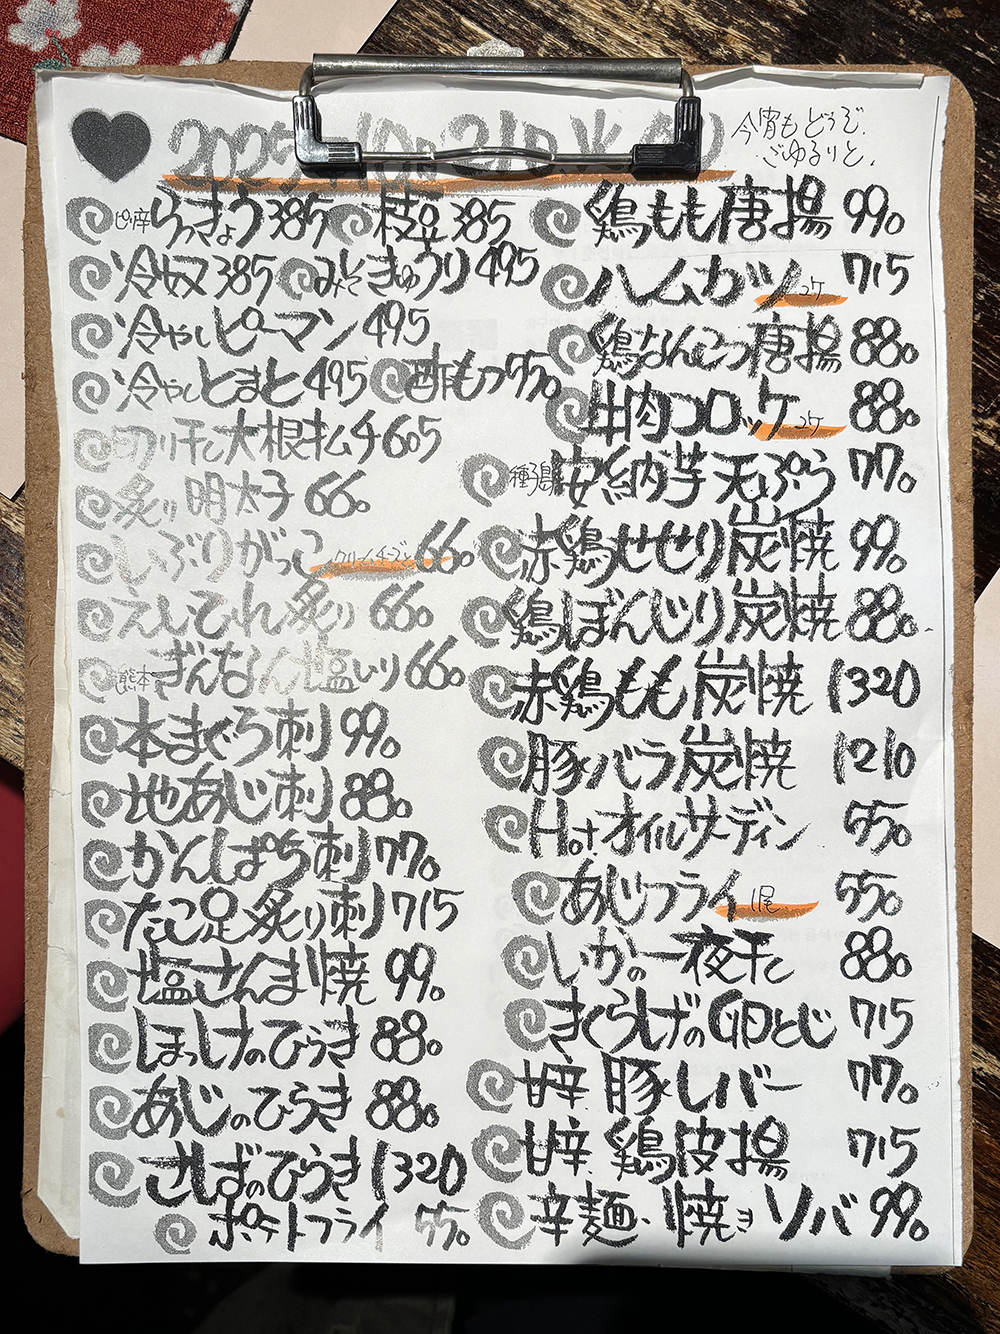 2025 10 21 火
今宵もどうぞ
ごゆるりと、
ピリ辛らっきょう 385 枝豆 385
冷奴 385 みそきゅうり 495
冷やしピーマン 495
冷やしとまと 495 酢もつ 550
切り干し大根ハムチ 605
炙り明太子 660
いぶりがっこ クリームチーズと 660
えいひれ炙り 660
熊本ぎんなん塩いり 660
本まぐろ刺 990
地あじ刺 880
かんぱち刺 770
たこ足炙り刺 715
塩さんま焼 990
ほっけのひらき 880
あじのひらき 880
さばのひらき 1320
ポテトフライ 550
鶏もも唐揚 990
ハムカツ 2ケ 715
鶏なんこつ唐揚 880
牛肉コロッケ 2ケ 880
種子島安納芋天ぷら 770
赤鶏せせり炭焼 990
鶏ぼんじり炭焼 880
赤鶏もも炭焼 1320
豚バラ炭焼 1210
Hotオイルサーディン 550
あじフライ 1尾 550
いかの一夜干し 880
きくらげの卵とじ 715
甘辛豚レバー 770
甘辛鶏皮揚 715
辛麺、焼きソバ 990